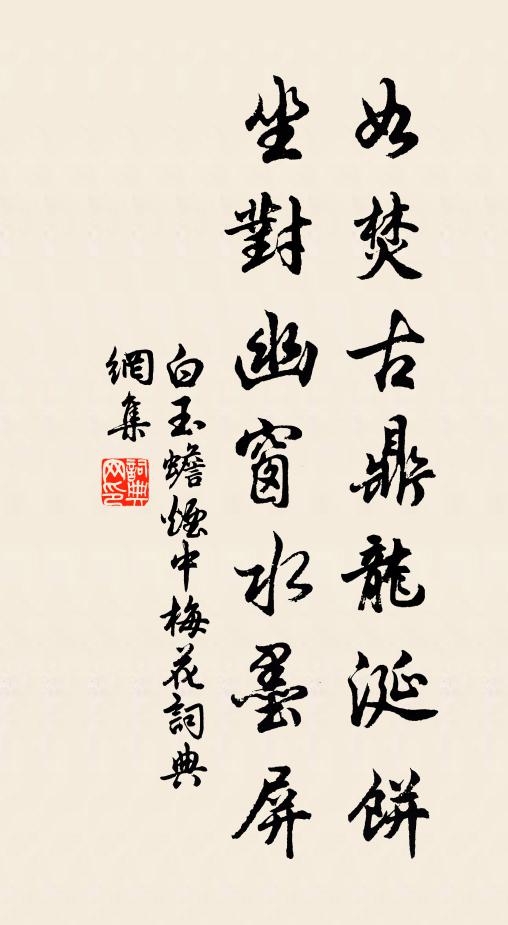 如焚古鼎龍涎餅
坐對幽窗水墨屏
白玉蟾煙中梅花詞典
網集
詞典網印